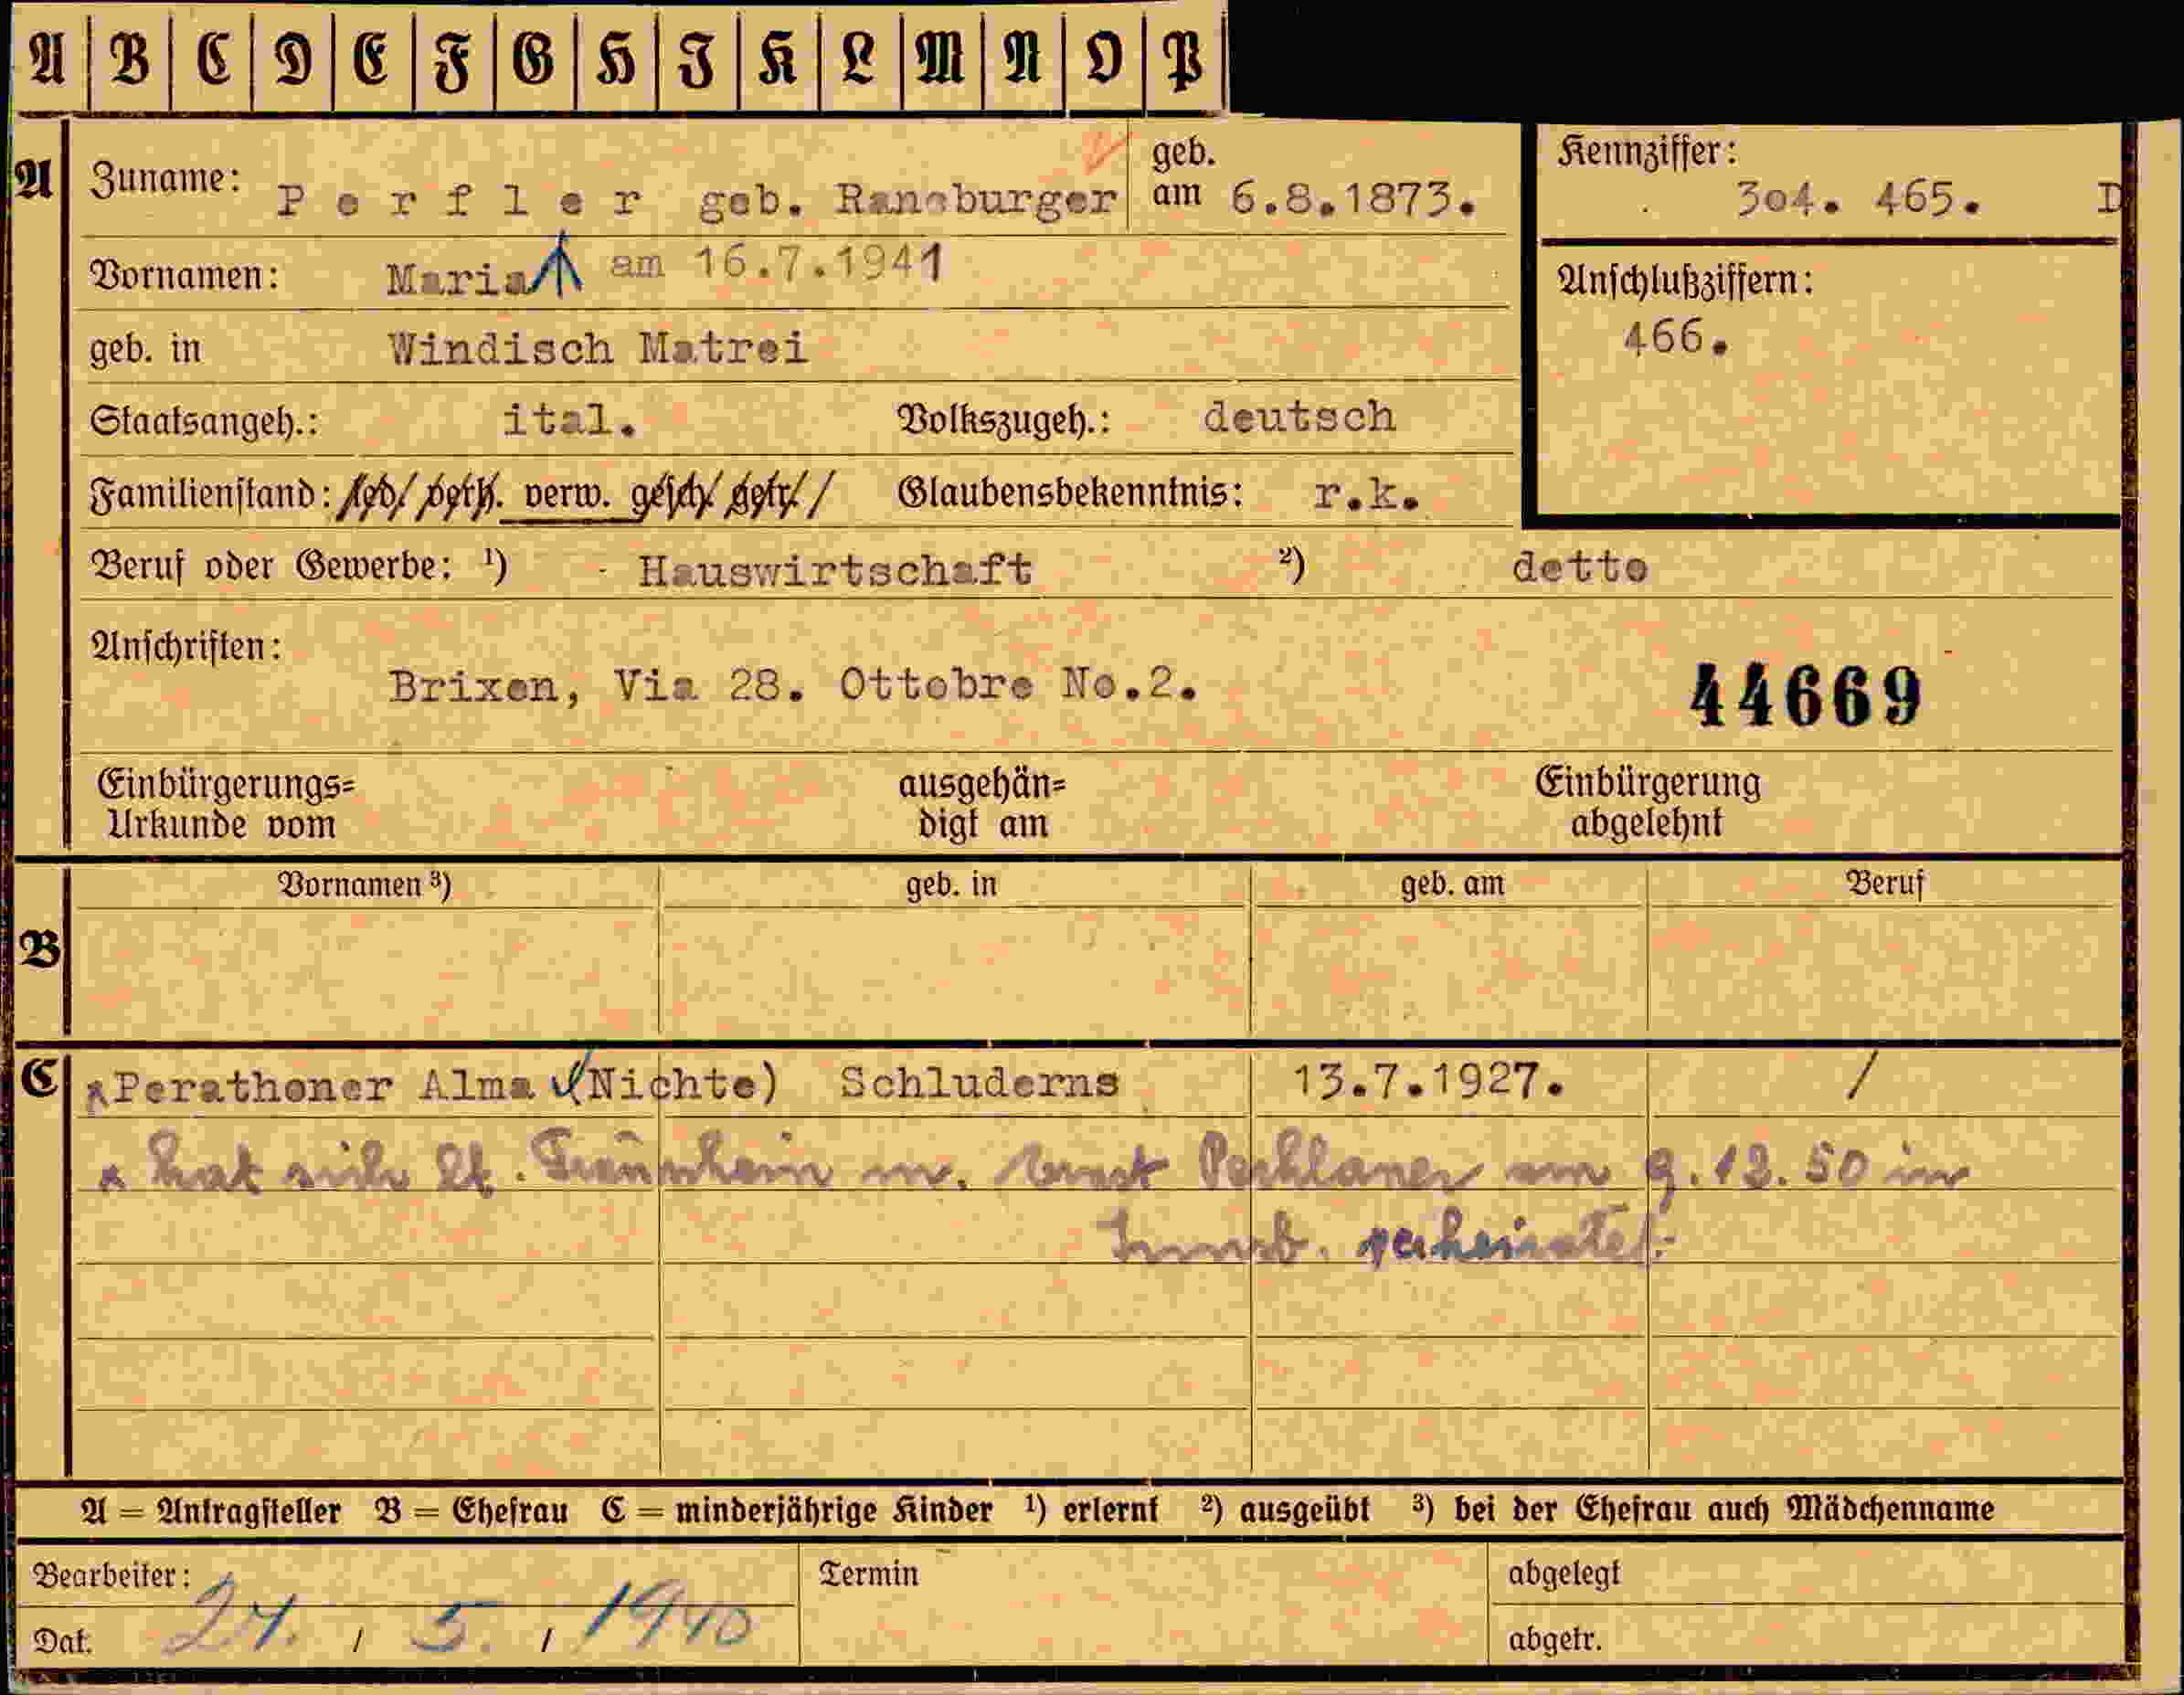 A B C D E F G H I K L M N O P
A Zuname: Perfler geb. Ransburger geb. am 6.8.1873. Kennziffer: 304. 465. D
Vornamen: Maria am 16.7.1941 Anschlußziffern:
466.
geb. in Windisch Matrei
Staatsangeh.: ital. Volkszugeh.: deutsch
Familienstand: led. verh. verw. gesch. getr. Glaubensbekenntnis: r.k.
Beruf oder Gewerbe: ¹) Hauswirtschaft ²) detto
Anschriften:
Brixen, Via 28. Ottobre No.2. 44669
Einbürgerungs= ausgehän= Einbürgerung
Urkunde vom digt am abgelehnt
Vornamen ³) geb. in geb. am Beruf
B
C Perathoner Alma (Nichte) Schluderns 13.7.1927. /
x hat sich lt. m. Ernst am 9.12.50 in
Innsb. verheiratet.
A = Antragsteller B = Ehefrau C = minderjährige Kinder ¹) erlernt ²) ausgeübt ³) bei der Ehefrau auch Mädchenname
Bearbeiter: Termin abgelegt
Dat. 24. / 5. / 1940 abgetr.